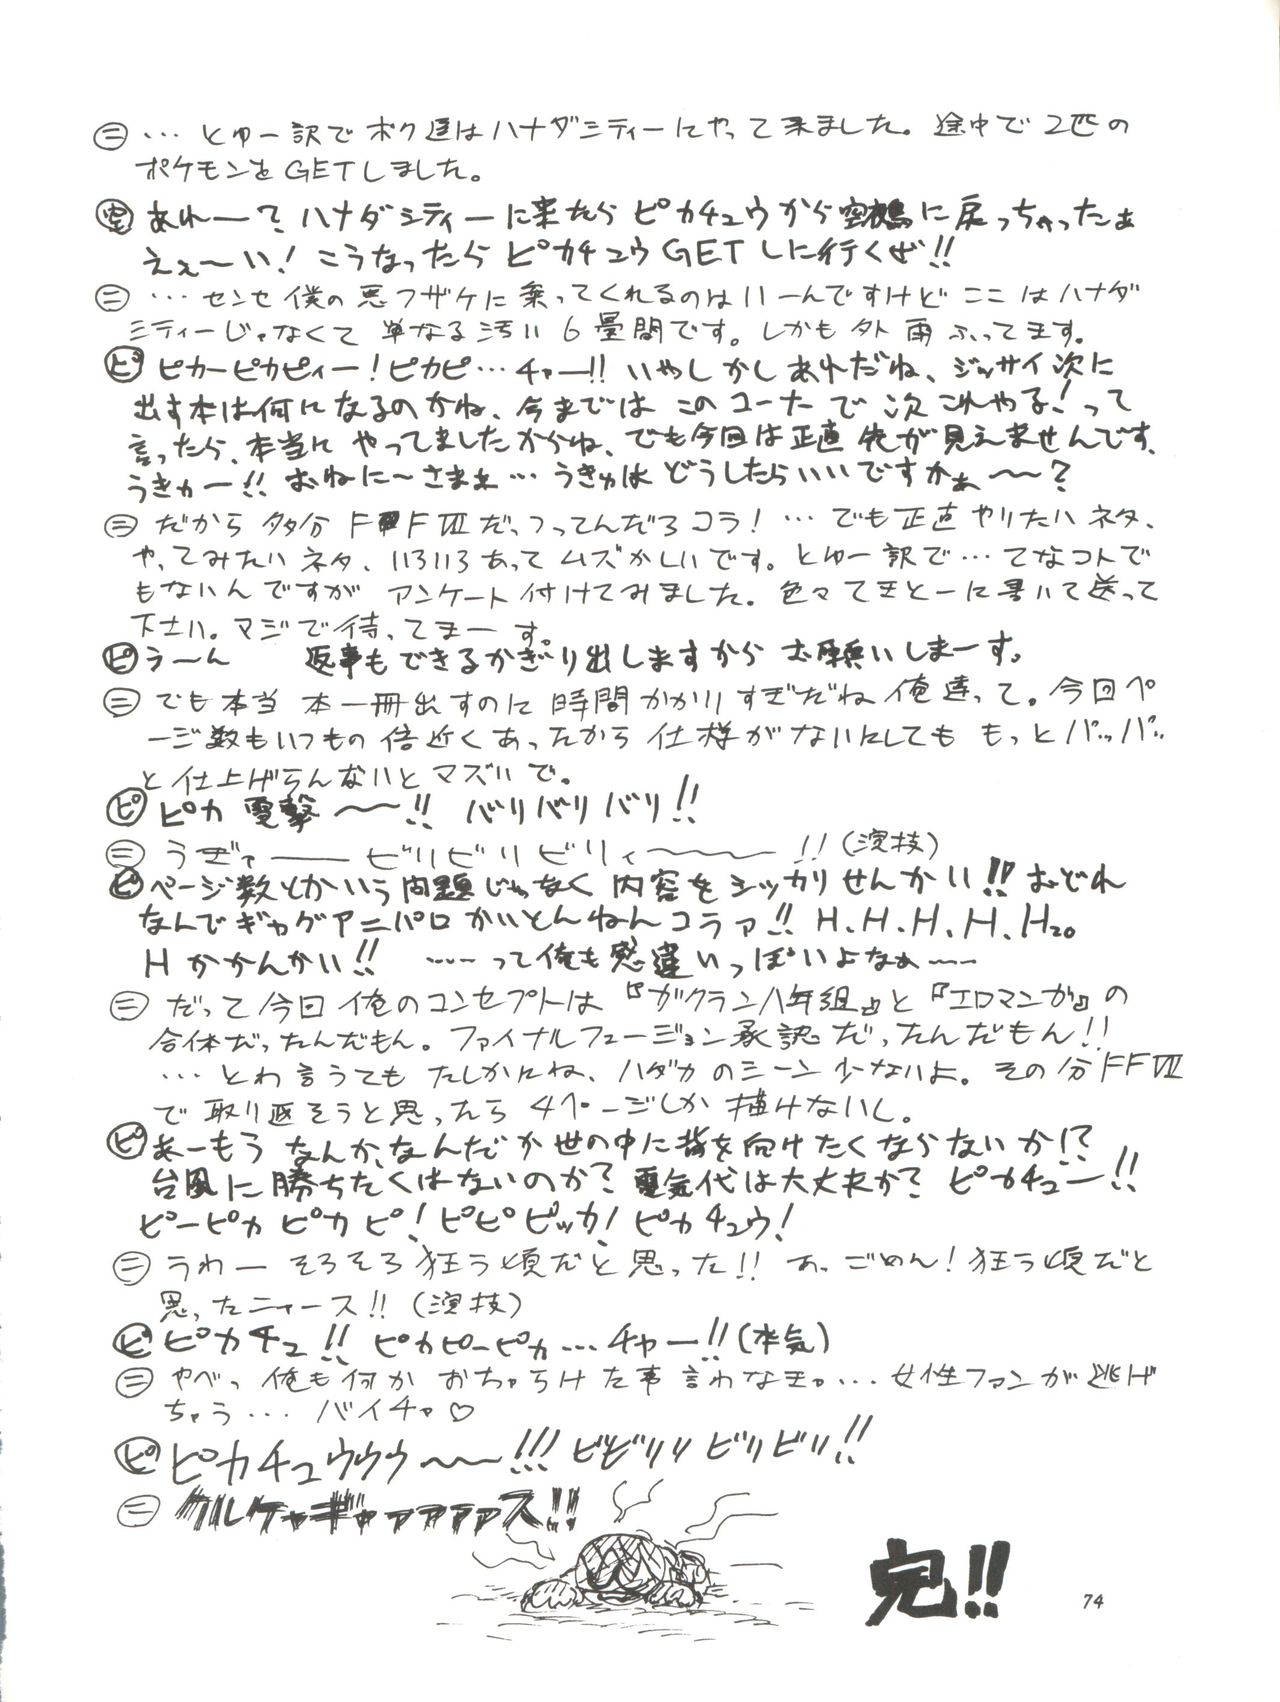 ㊁ … とゆー訳でボク達はハナダシティーにやって来ました。途中で2匹の
ポケモンをGETしました。
あれ——？ハナダシティーに来たらピカチュウから空鵺に戻っちゃったぁ
えぇ〜い！こうなったらピカチュウGETしに行くぜ!!
㊁ … センセ僕の悪フザケに乗ってくれるのはいーんですけどここはハナダ
シティーじゃなくて単なる汚い6畳間です。しかも外雨ふってます。
ピ ピカーピカピィー！ピカピ…チャー!! いやしかしあれだね、ジッサイ次に
出す本は何になるのかね、今まではこのコーナーで次これやる！って
言ったら、本当にやってましたからね、でも今回は正直先が見えませんです、
うきゅー!! おねに〜さまぁ… うきゅはどうしたらいいですかぁ〜〜？
㊁ だから多分FFⅦだっつってんだろコラ！… でも正直やりたいネタ、
やってみたいネタ、いろいろあってムズかしいです。とゆー訳で… てなコトで
もないんですがアンケート付けてみました。色々てきとーに書いて送って
下さい。マジで待ってまーす。
ピ う〜ん 返事もできるかぎり出しますからお願いしまーす。
㊁ でも本当本一冊出すのに時間かかりすぎだね俺達って。今回ペ
ージ数もいつもの倍近くあったから仕様がないにしてももっとパッパッ
と仕上げらんないとマズいで。
ピ ピカ電撃〜〜!! バリバリバリ!!
㊁ うぎゃ——ビリビリビリィ〜〜〜!!（演技）
ピ ページ数とかいう問題じゃなく内容をシッカリせんかい!! おどれ
なんでギャグアニパロかいとんねんコラァ!! H.H.H.H.H₂O
Hかかんかい!! ……って俺も感違いっぽいよなぁ……
㊁ だって今回俺のコンセプトは『ガクラン八年組』と『エロマンガ』の
合体だったんだもん。ファイナルフュージョン承認だったんだもん!!
… とわ言うてもたしかにね、ハダカのシーン少ないよ。その分FFⅦ
で取り返そうと思ったら4ページしか描けないし。
ピ あーもうなんか、なんだか世の中に背を向けたくならないか!?
台風に勝ちたくはないのか？電気代は大丈夫か？ピカチュー!!
ピーピカピカピ！ピピピッカ！ピカチュウ！
㊁ うわーそろそろ狂う頃だと思った!! あっごめん！狂う頃だと
思ったニャース!!（演技）
ピ ピカチュ!! ピカピーピカ…チャー!!（本気）
㊁ やべっ俺も何かおちゃらけた事言わなきゃ… 女性ファンが逃げ
ちゃう… バイチャ♡
ピ ピカチュウウウ〜〜!!! ビビリリビリビリ!!
㊁ クルケャギャァァァァス!!
完!!
74